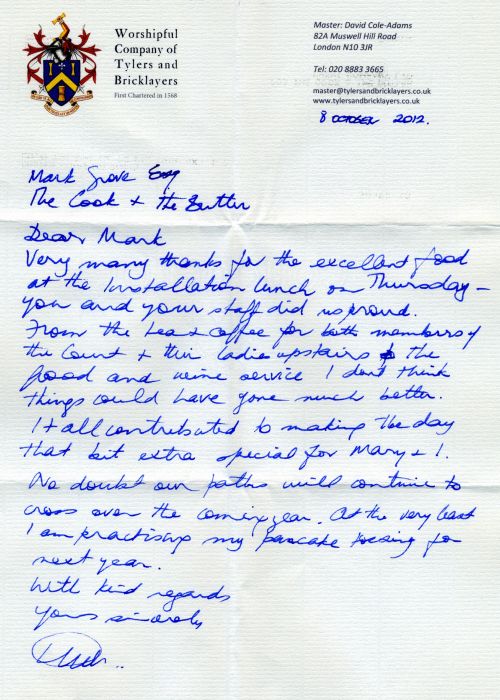 Worshipful
Company of
Tylers and
Bricklayers
First Chartered in 1568
Master: David Cole-Adams
82A Muswell Hill Road
London N10 3JR
Tel: 020 8883 3665
master@tylersandbricklayers.co.uk
www.tylersandbricklayers.co.uk
8 OCTOBER 2012.
Mark Grove Esq
The Cook + the Butler
Dear Mark
Very many thanks for the excellent food
at the Installation lunch on Thursday –
you and your staff did us proud.
From the tea + coffee for both members of
the Court + their ladies upstairs to the
food and wine service I don't think
things could have gone much better.
It all contributed to making the day
that bit extra special for Mary + I.
No doubt our paths will continue to
cross over the coming year. At the very least
I am practising my pancake tossing for
next year.
With kind regards
Yours sincerely